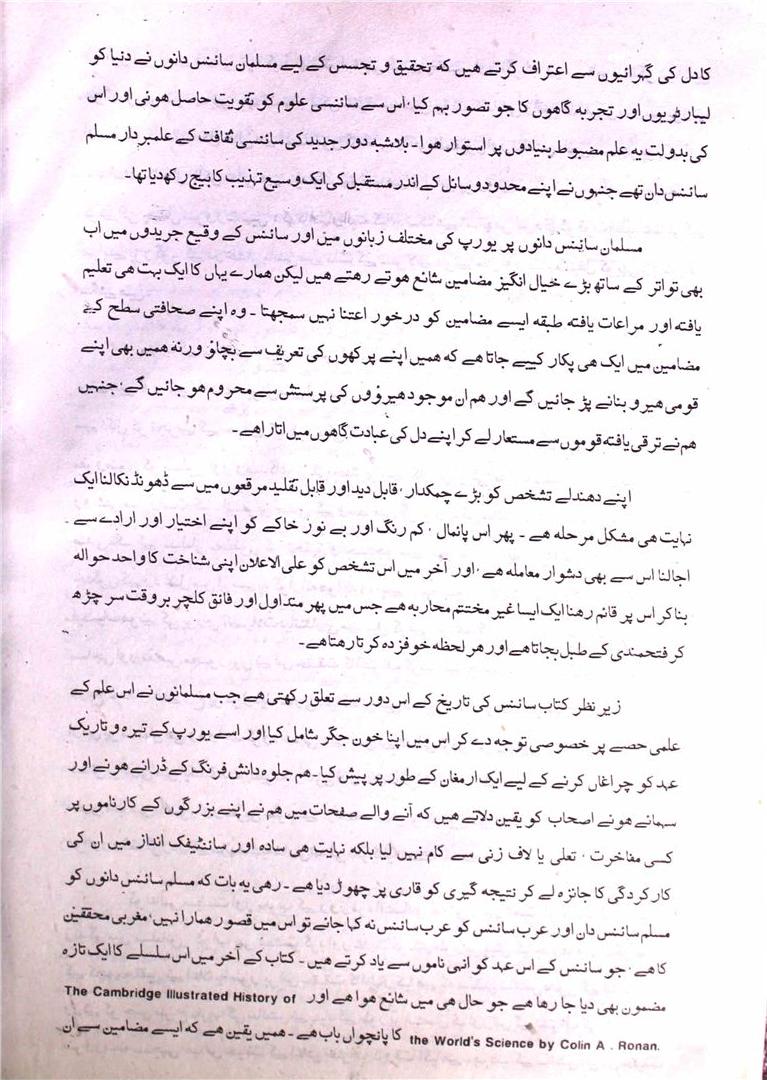 کا دل کی گہرائیوں سے اعتراف کرتے ہیں کہ تحقیق و تجسس کے لیے مسلمان سائنس دانوں نے دنیا کو
لیبارٹریوں اور تجربہ گاہوں کا جو تصور بہم کیا، اس سے سائنسی علوم کو تقویت حاصل ہوئی اور اس
کی بدولت یہ علم مضبوط بنیادوں پر استوار ہوا۔ بلاشبہ دور جدید کی سائنسی ثقافت کے علمبردار مسلم
سائنس دان تھے جنہوں نے اپنے محدود وسائل کے اندر مستقبل کی ایک وسیع تہذیب کا بیج رکھ دیا تھا۔
مسلمان سائنس دانوں پر یورپ کی مختلف زبانوں میں اور سائنس کے وقیع جریدوں میں اب
بھی تواتر کے ساتھ بڑے خیال انگیز مضامین شائع ہوتے رہتے ہیں لیکن ہمارے یہاں کا ایک بہت ہی تعلیم
یافتہ اور مراعات یافتہ طبقہ ایسے مضامین کو درخور اعتنا نہیں سمجھتا۔ وہ اپنے صحافتی سطح کے
مضامین میں ایک ہی پکار کیے جاتا ہے کہ ہمیں اپنے پرکھوں کی تعریف سے بچاؤ ورنہ ہمیں بھی اپنے
قومی ہیرو بنانے پڑ جائیں گے اور ہم ان موجود ہیروؤں کی پرستش سے محروم ہو جائیں گے، جنہیں
ہم نے ترقی یافتہ قوموں سے مستعار لے کر اپنے دل کی عبادت گاہوں میں اتارا ہے۔
اپنے دھندلے تشخص کو بڑے چمکدار، قابل دید اور قابل تقلید مرقعوں میں سے ڈھونڈ نکالنا ایک
نہایت ہی مشکل مرحلہ ہے۔ پھر اس پائمال، کم رنگ اور بے نور خاکے کو اپنے اختیار اور ارادے سے
اجالنا اس سے بھی دشوار معاملہ ہے، اور آخر میں اس تشخص کو علی الاعلان اپنی شناخت کا واحد حوالہ
بنا کر اس پر قائم رہنا ایک ایسا غیر مختتم محاربہ ہے جس میں پھر متداول اور فائق کلچر ہر وقت سر چڑھ
کر فتحمندی کے طبل بجاتا ہے اور ہر لحظہ خوفزدہ کرتا رہتا ہے۔
زیر نظر کتاب سائنس کی تاریخ کے اس دور سے تعلق رکھتی ہے جب مسلمانوں نے اس علم کے
علمی حصے پر خصوصی توجہ دے کر اس میں اپنا خون جگر شامل کیا اور اسے یورپ کے تیرہ و تاریک
عہد کو چراغاں کرنے کے لیے ایک ارمغان کے طور پر پیش کیا۔ ہم جلوہ دانش فرنگ کے ڈرائے ہوئے اور
سہمائے ہوئے اصحاب کو یقین دلاتے ہیں کہ آنے والے صفحات میں ہم نے اپنے بزرگوں کے کارناموں پر
کسی مفاخرت، تعلی یا لاف زنی سے کام نہیں لیا بلکہ نہایت ہی سادہ اور سائنٹیفک انداز میں ان کی
کارکردگی کا جائزہ لے کر نتیجہ گیری کو قاری پر چھوڑ دیا ہے۔ رہی یہ بات کہ مسلم سائنس دانوں کو
مسلم سائنس دان اور عرب سائنس کو عرب سائنس نہ کہا جائے تو اس میں قصور ہمارا نہیں، مغربی محققین
کا ہے، جو سائنس کے اس عہد کو انہی ناموں سے یاد کرتے ہیں۔ کتاب کے آخر میں اس سلسلے کا ایک تازہ
مضمون بھی دیا جا رہا ہے جو حال ہی میں شائع ہوا ہے اور The Cambridge Illustrated History of
the World's Science by Colin A . Ronan. کا پانچواں باب ہے۔ ہمیں یقین ہے کہ ایسے مضامین سے ان